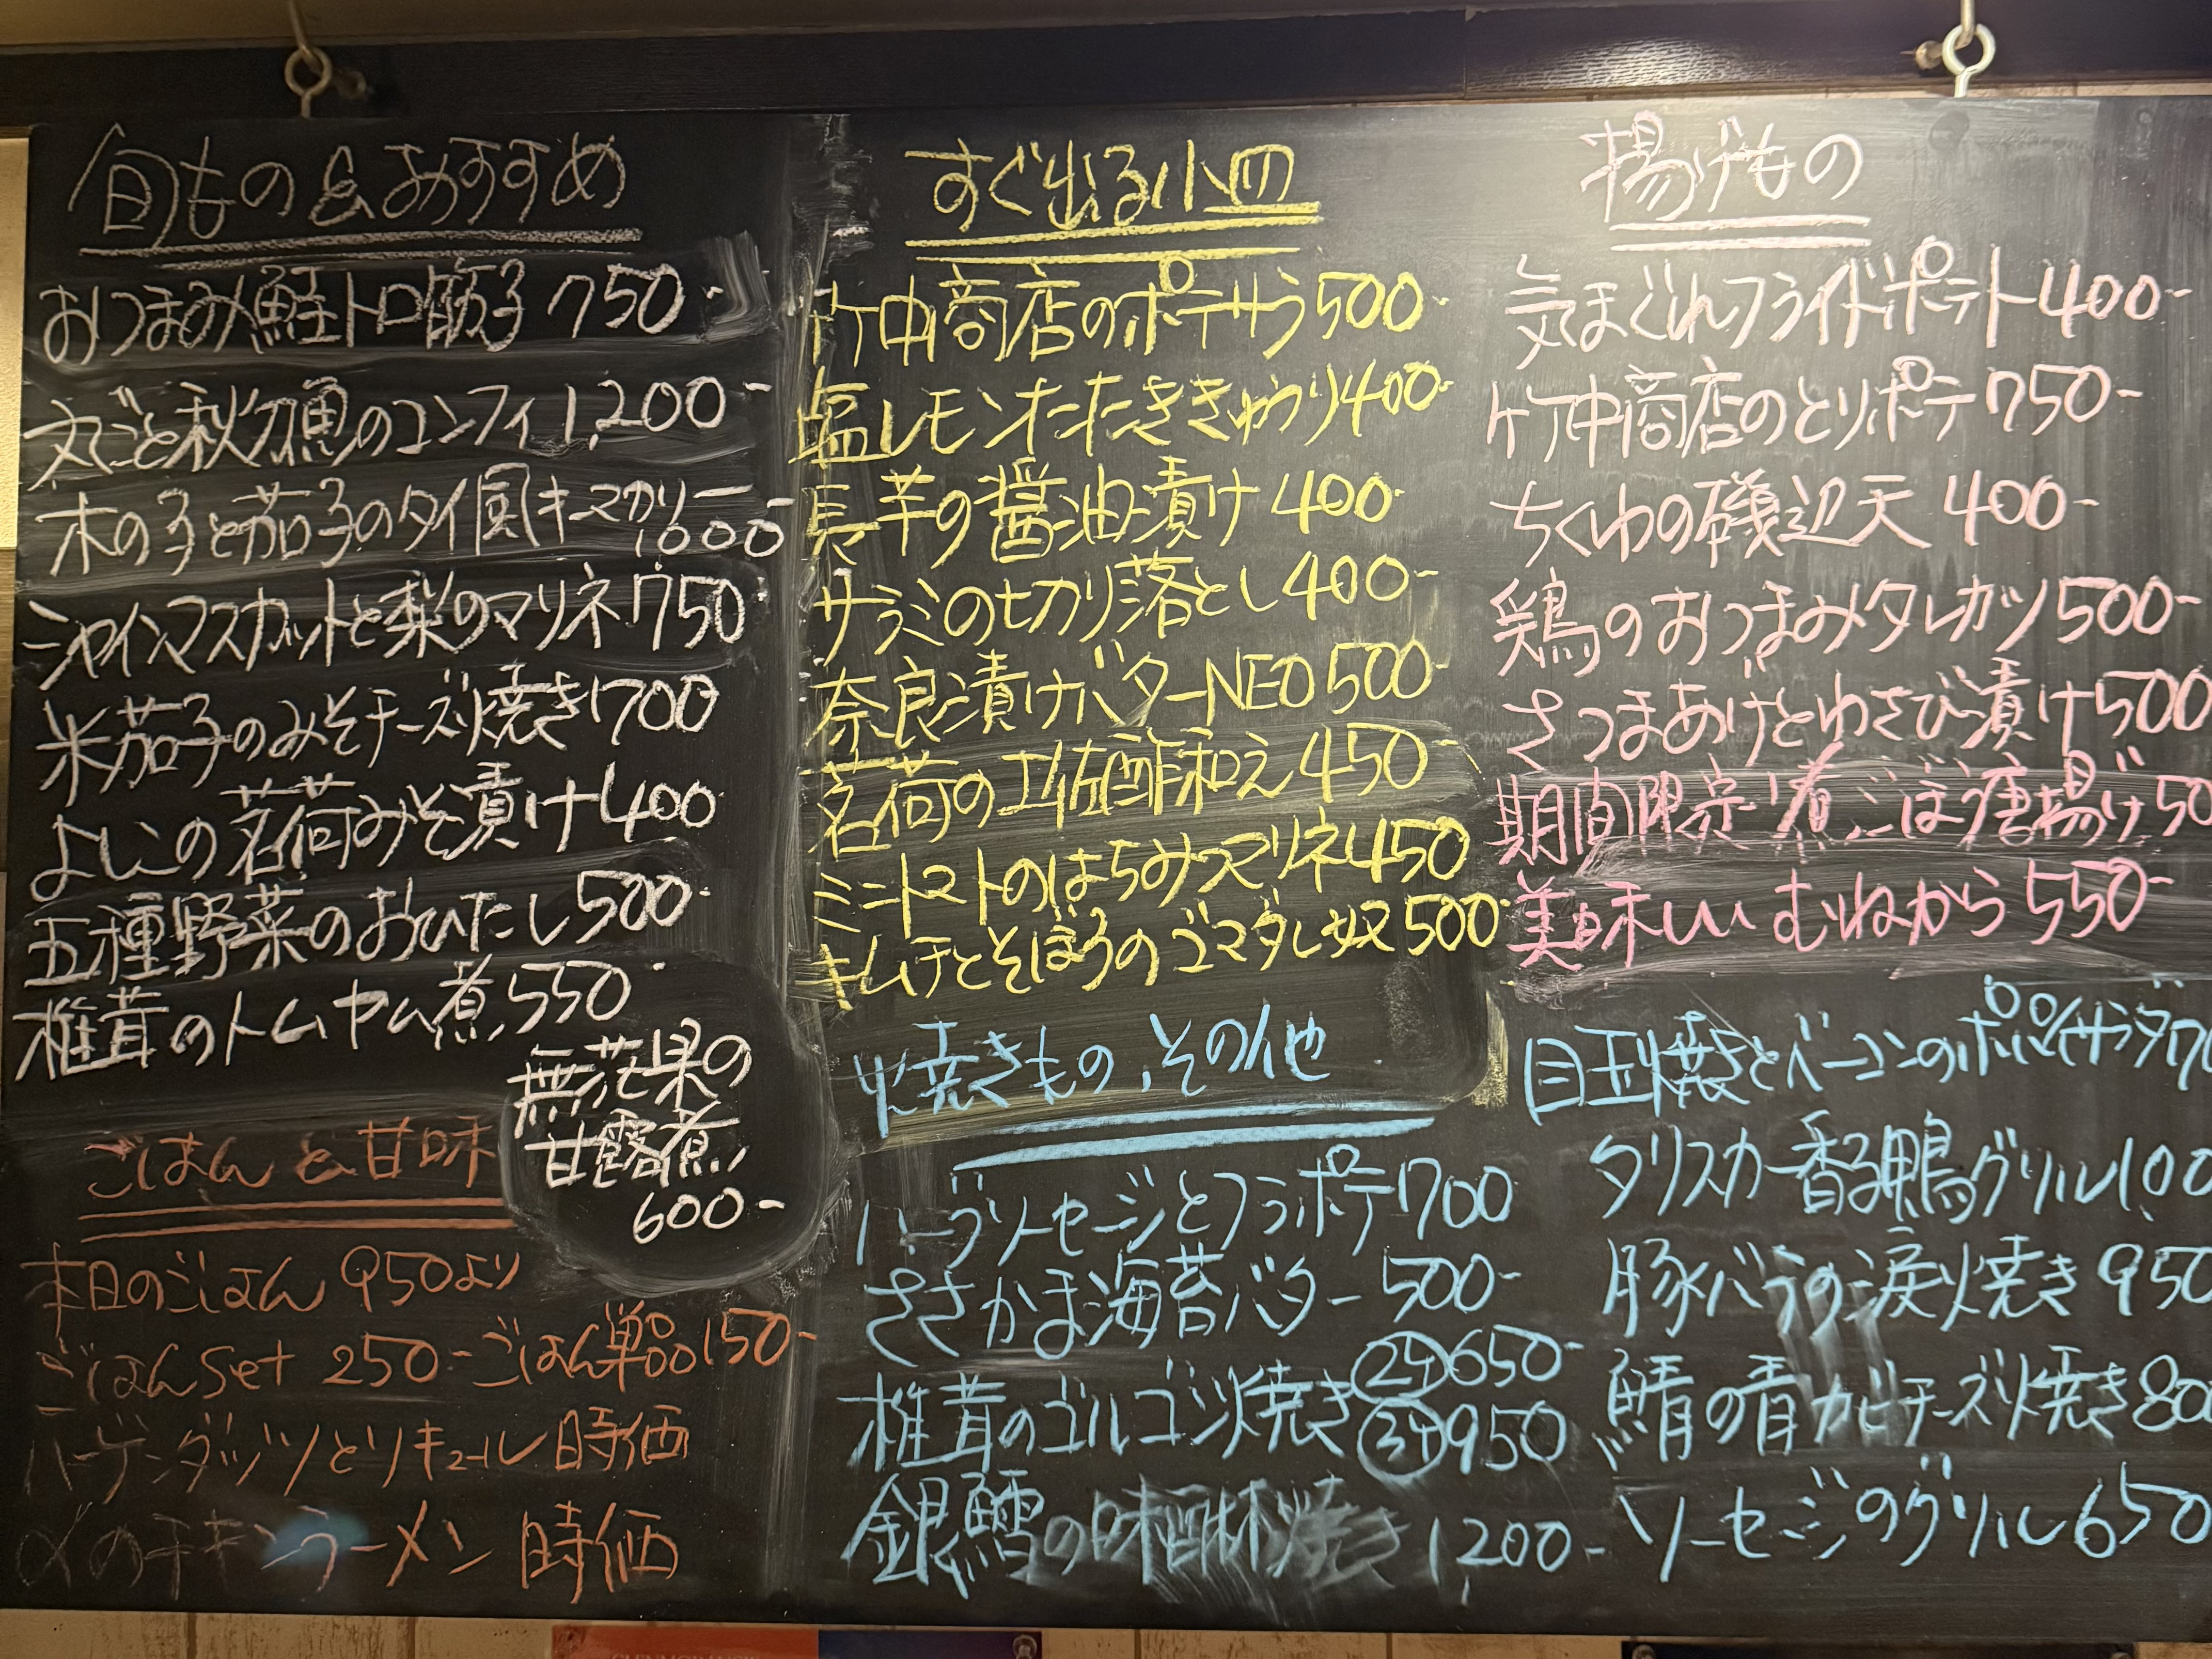 旬もの&おすすめ
おつまみ鮭トロ筋子 750-
丸ごと秋刀魚のコンフィ 1,200-
木の子と茄子のタイ風キーマカリー
1,000-
シャインマスカットと梨のマリネ 750-
米茄子のみそチーズ焼き 700
よしこの茗荷みそ漬け 400
五種野菜のおひたし 500-
椎茸のトムヤム煮 550-
無花果の
甘露煮
600-
ごはんと甘味
本日のごはん 950より
ごはんset 250- ごはん単品 150-
ハーゲンダッツとリキュール 時価
〆のチキンラーメン 時価
すぐ出る小皿
竹中商店のポテサラ 500-
塩レモンたたききゅうり 400-
長芋の醤油漬け 400-
サラミの切り落とし 400-
奈良漬けバターNEO 500-
茗荷の土佐酢和え 450-
ミニトマトのはちみつマリネ 450
キムチとそぼろのゴマダレ奴 500-
焼きもの、その他
ハーブソーセージとフラポテ 700
ささかま海苔バター 500-
椎茸のゴルゴンゾーラ焼き ②ケ 650-
③ケ 950
銀鱈の味醂焼き 1,200-
揚げもの
気まぐれフライドポテト 400-
竹中商店のとりポテ 750-
ちくわの磯辺天 400-
鶏のおつまみタレカツ 500-
さつまあげとわさび漬け 500
期間限定 煮ごぼ唐揚げ 50
美味しいむねから 550-
目玉焼きとベーコンのポパイサラダ 70
タリスカー香る鴨グリル 1,00
豚バラの涙焼き 950
鯖の青カビチーズ焼き 80
ソーセージのグリル 650